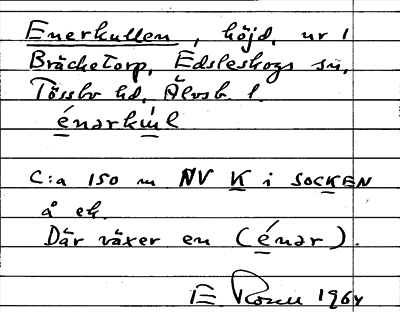 Enerkullen, höjd, nr 1
Bräcketorp, Edsleskogs sn,
Tössbo hd, Älvsb. l.
énarkùl
C:a 150 m NV K i SOCKEN
å ek.
Där växer en (énar).
E. Rosell 1964